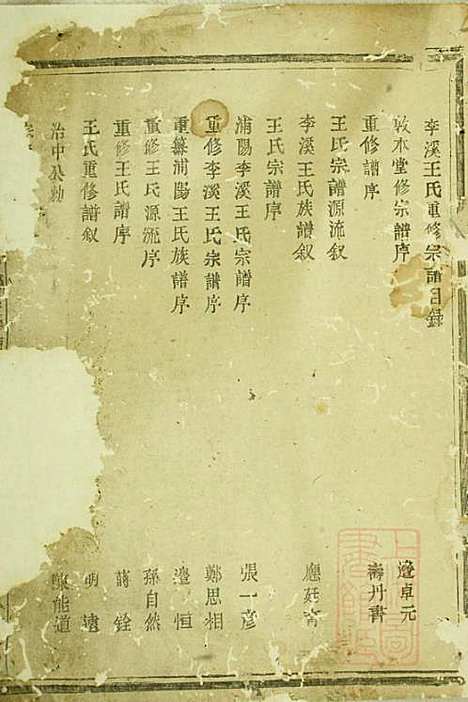 李溪王氏重修宗譜目録
敦本堂修宗譜序 邉卓元
重修譜序 書
王氏宗譜源流叙
李溪王氏族譜叙 應廷
王氏宗譜序
浦陽李溪王氏宗譜序 張一彦
重修李溪王氏宗譜序 鄭思相
重纂浦陽王氏族譜序 邉恒
重修王氏源流序 孫自然
重修王氏譜序 蔣銓
王氏重修譜叙 明遠
治中公勅 能道